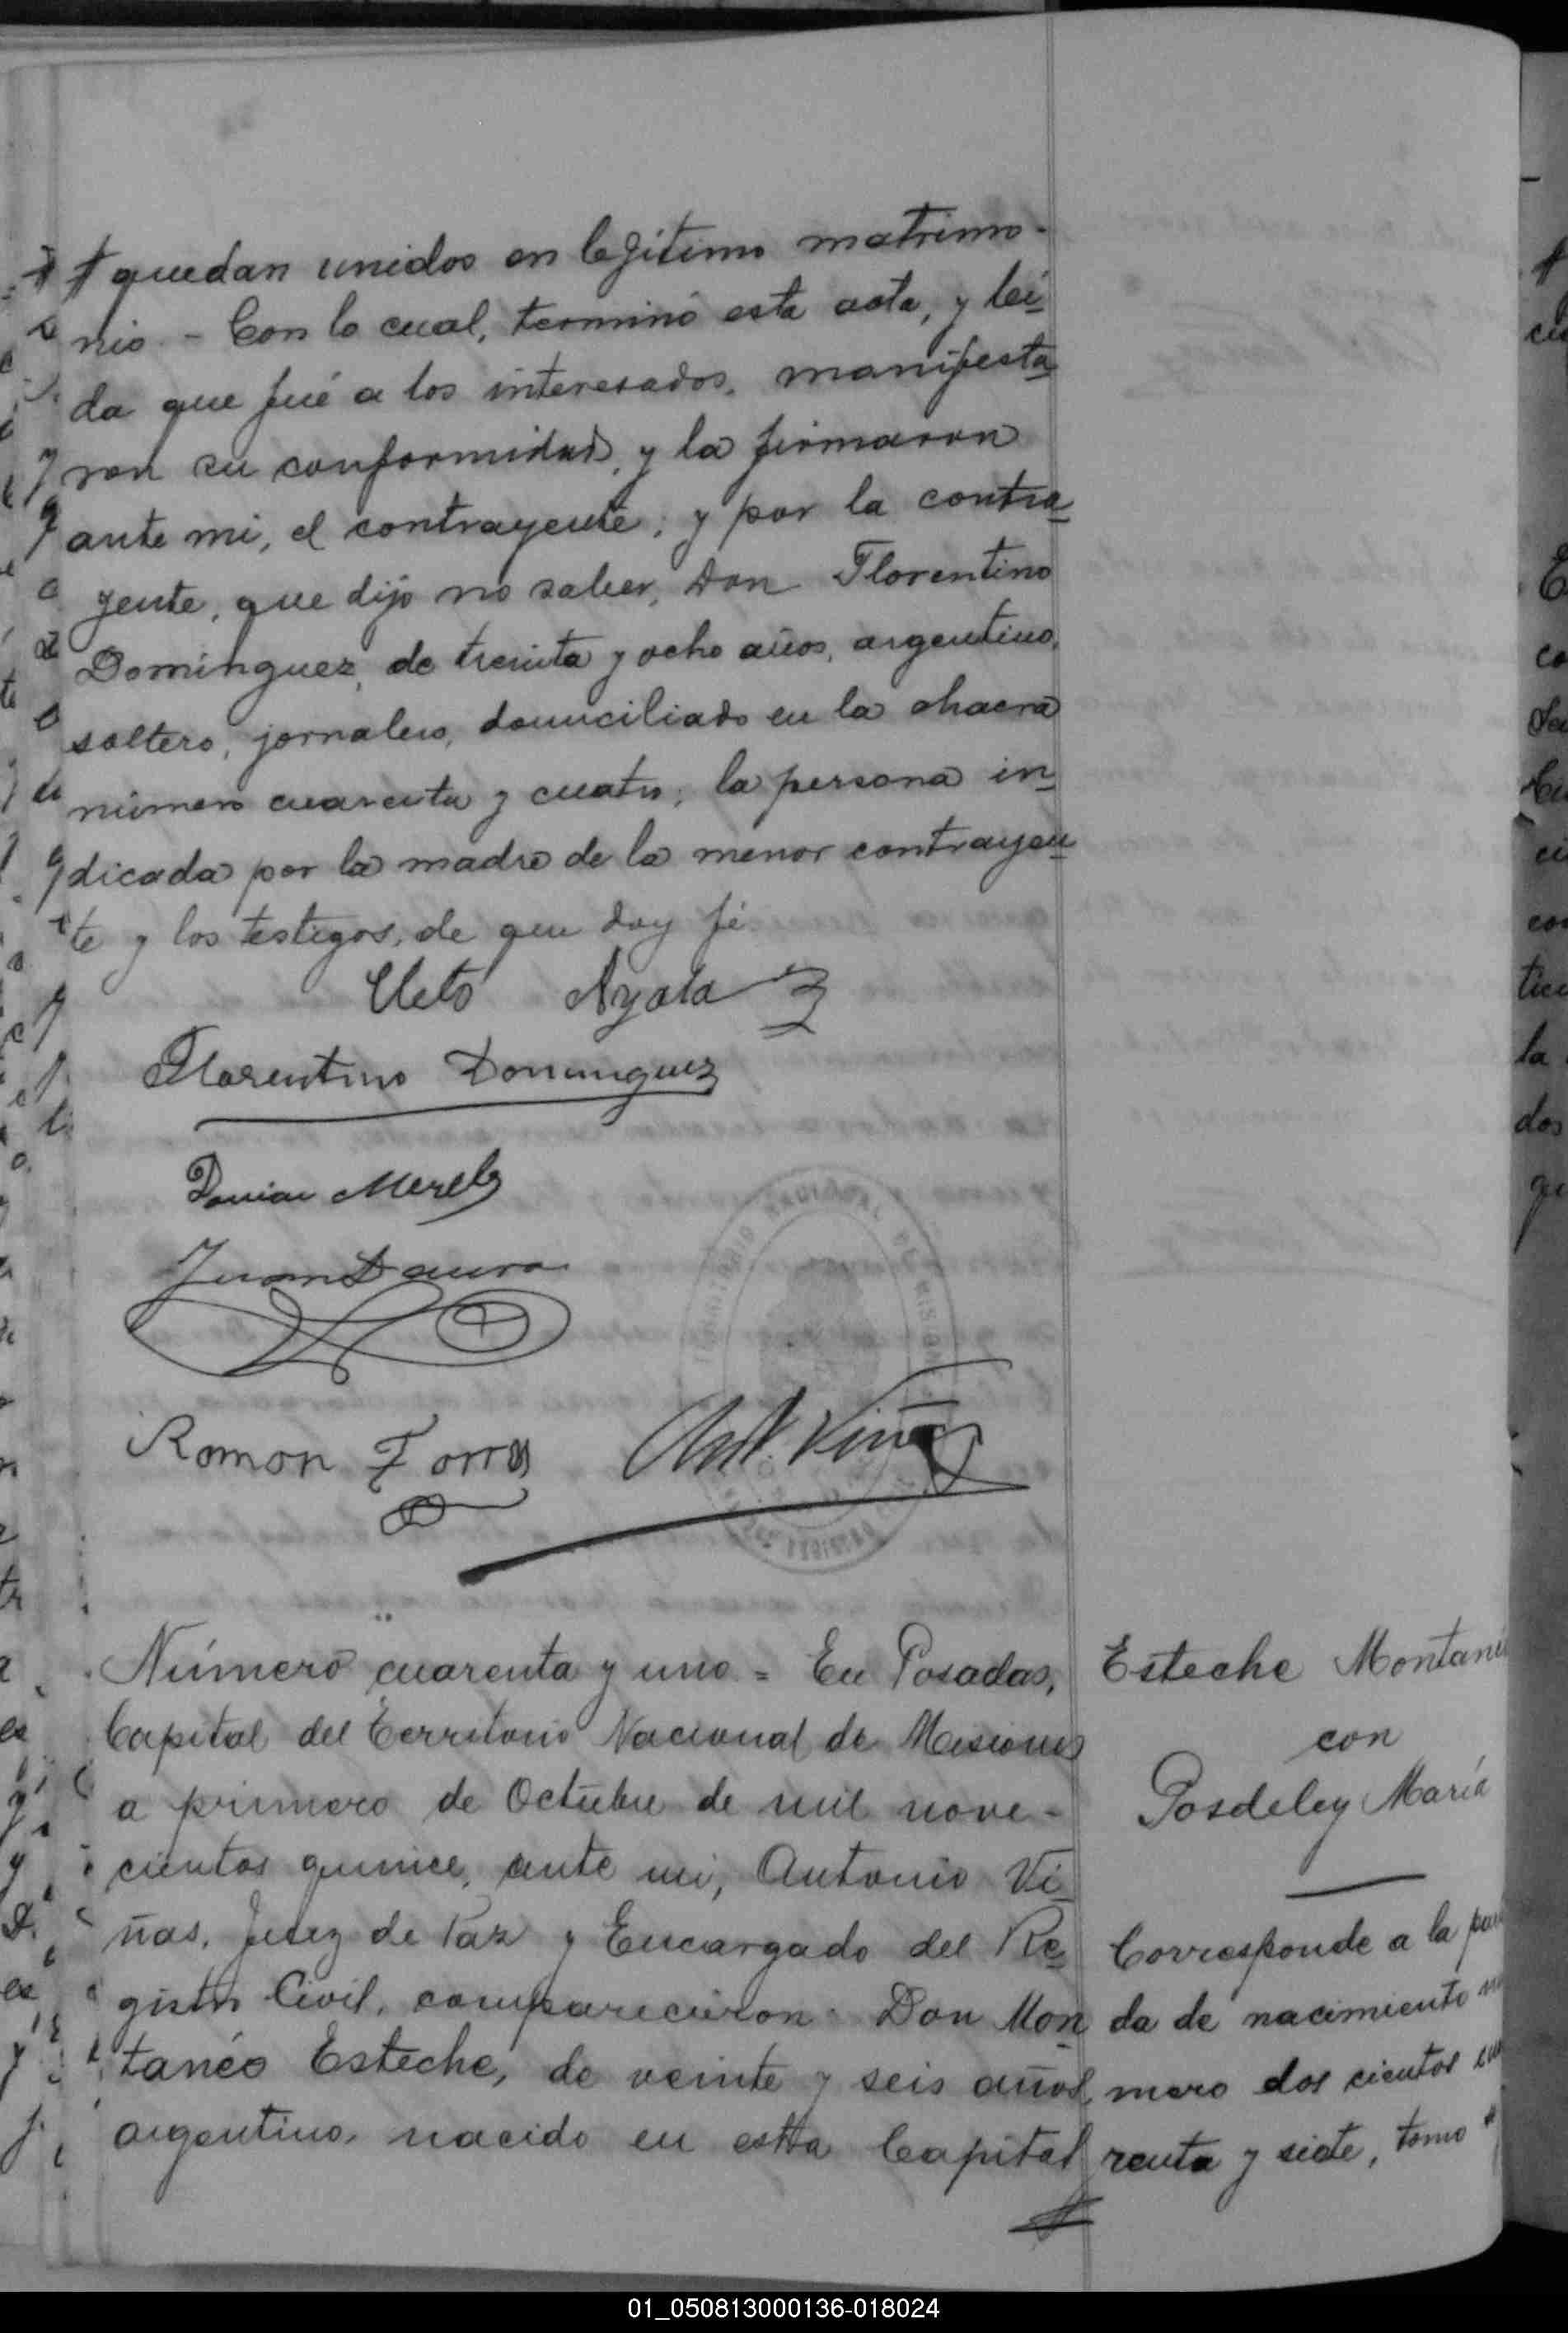 quedan unidos en legítimo matrimo-
nio. - Con lo cual, terminó esta acta, y leí
da que fué a los interesados, manifesta
ron su conformidad, y la firmaron
ante mi, el contrayente; y por la contra
yente, que dijo no saber, Don Florentino
Dominguez, de treinta y ocho años, argentino,
soltero, jornalero, domiciliado en la chacra
número cuarenta y cuatro; la persona in
dicada por la madre de la menor contrayen
te y los testigos, de que doy fé
Cleto Ayala
Florentino Dominguez
Juan
Ramon Torres
Ant. Viñas
Número cuarenta y uno = En Posadas,
Capital del Territorio Nacional de Misiones
a primero de Octubre de mil nove-
cientos quince, ante mi, Antonio Vi
ñas, Juez de Paz y Encargado del Re
gistro Civil, comparecieron: Don Mon
tanéo Esteche, de veinte y seis años,
argentino, nacido en esta Capital
Esteche
con
Posdeley María
Corresponde a la
da de nacimiento
mero dos cientos
renta y siete, tomo
01_050813000136-018024